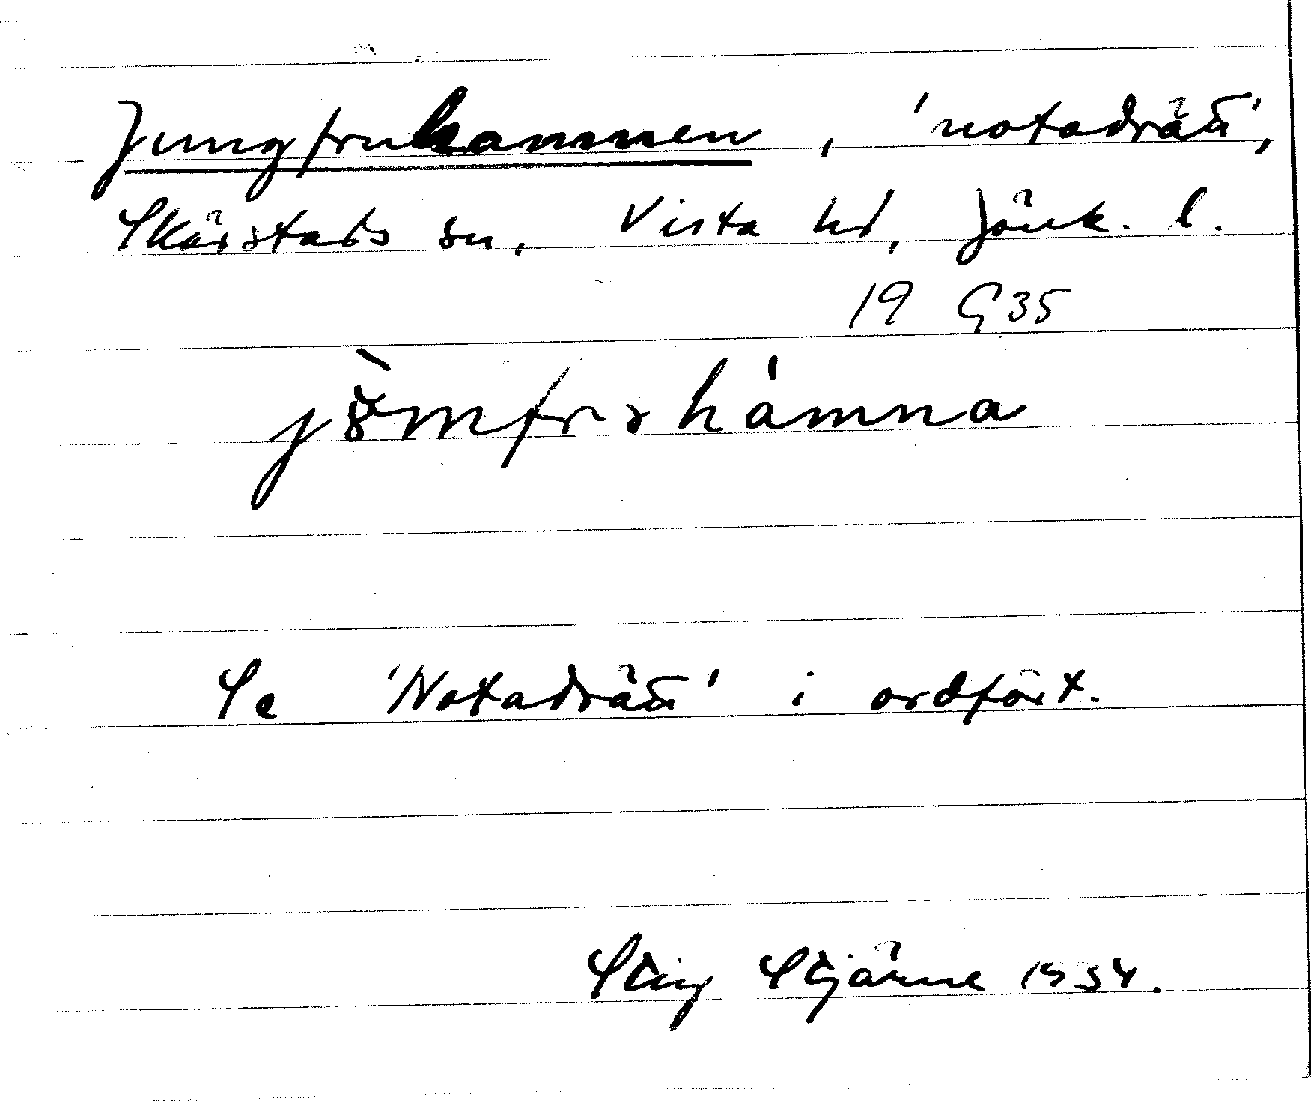 Jungfruhamnen, 'notadrätt',
Skärstads sn, Vista hd, Jönk. l.
19 G35
Se 'Notadrätt' i ordfört.
Stig Stjärne 1934.